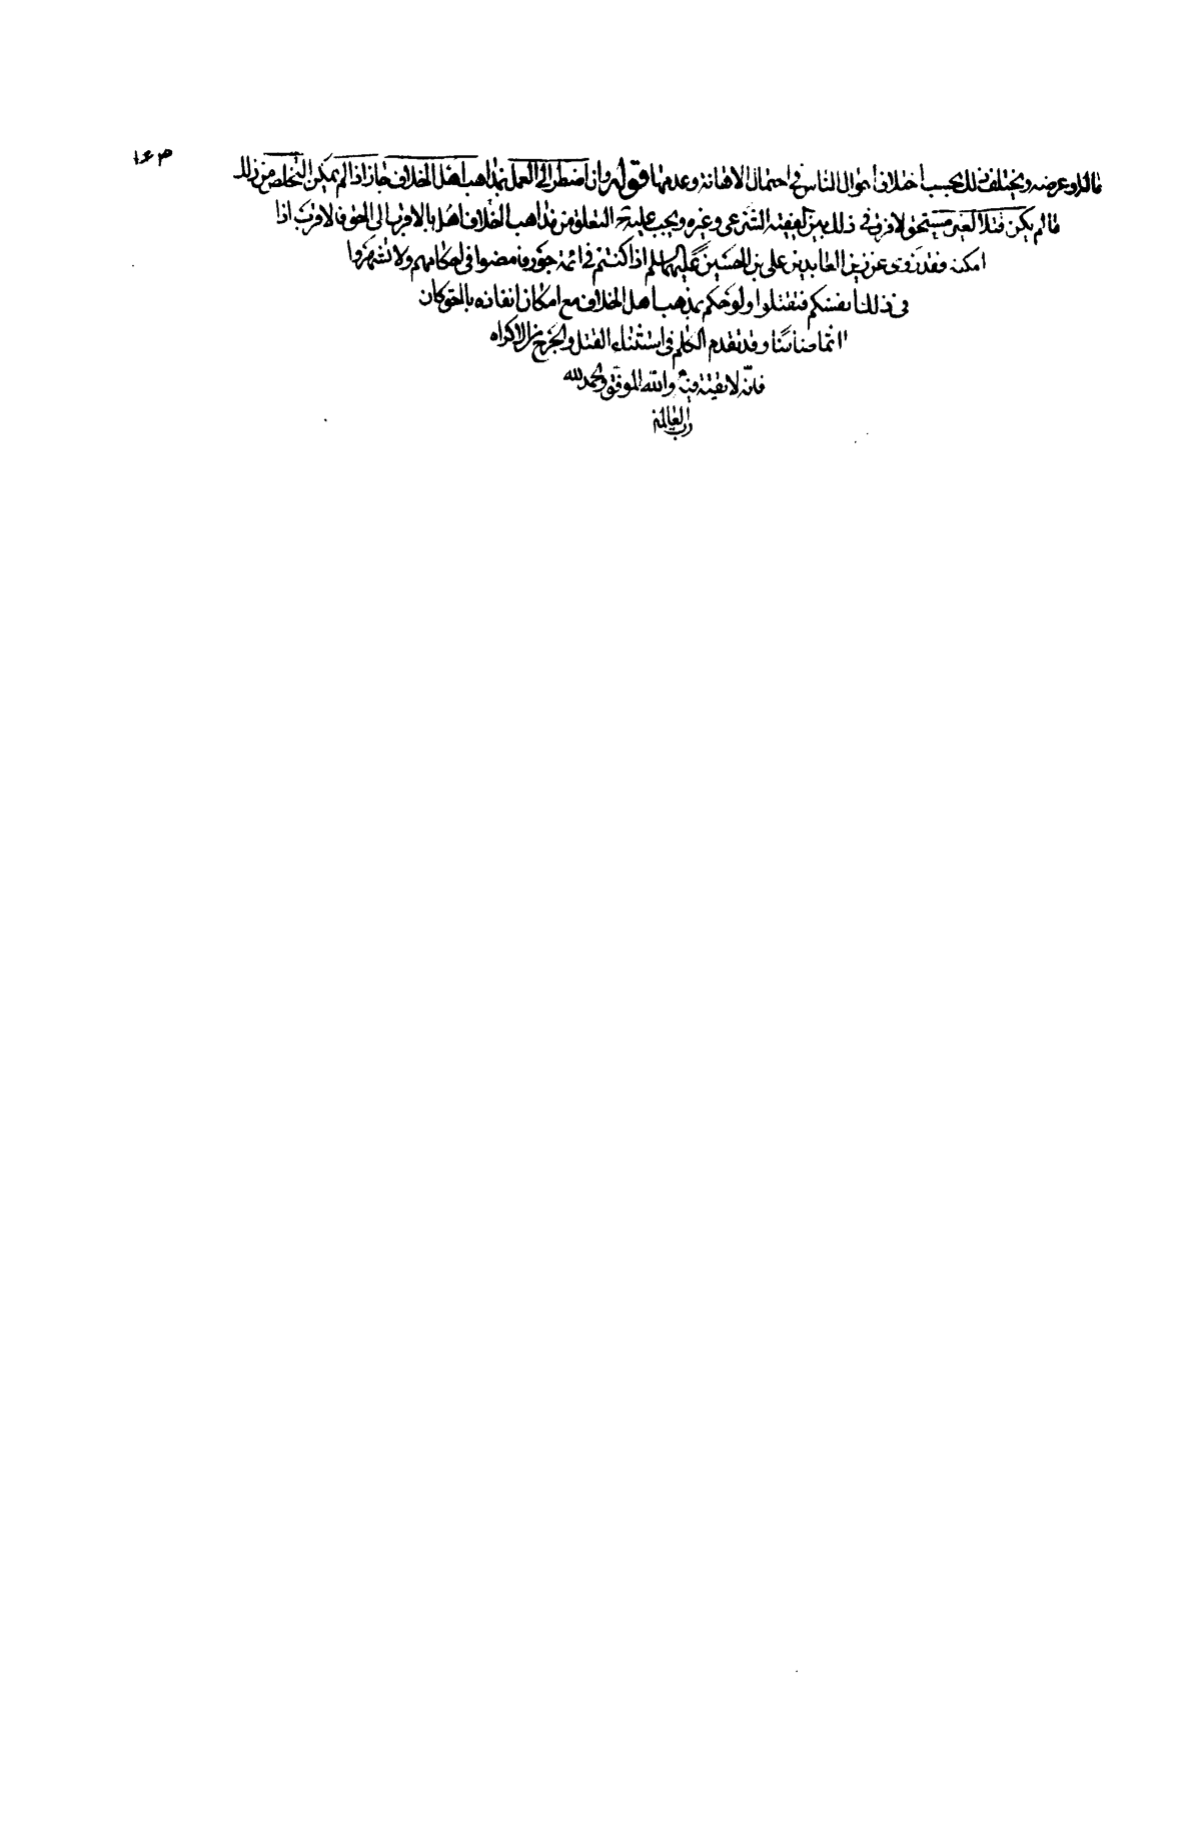 ١٤٣
ماله او عرضه ويختلف ذلك بحسب اختلاف احوال الناس في احتمال الاهانة وعدمها قوله وان اضطر الى العمل بمذاهب اهل الخلاف جاز اذا لم يمكن التخلص من ذلك
ما لم يكن قتلا لغير مستحق لا فرق في ذلك بين الفقيه الشرعي وغيره ويجب عليه التعلق من مذاهب الخلاف اهل بالاقرب الى الحق فالاقرب اذا
امكن فقد روى عن زين العابدين علي بن الحسين عليهما السلم اذا كنتم في ائمة جور فامضوا في احكامهم ولا تشهروا
في ذلك انفسكم فتقتلوا ولو حكم بمذهب اهل الخلاف مع امكان انفاذه بالحق كان
اثما ضامنا وقد تقدم الكلام في استثناء القتل والجرح من الاكراه
فانه لا تقية فيه والله الموفق والحمد لله
رب العالمين